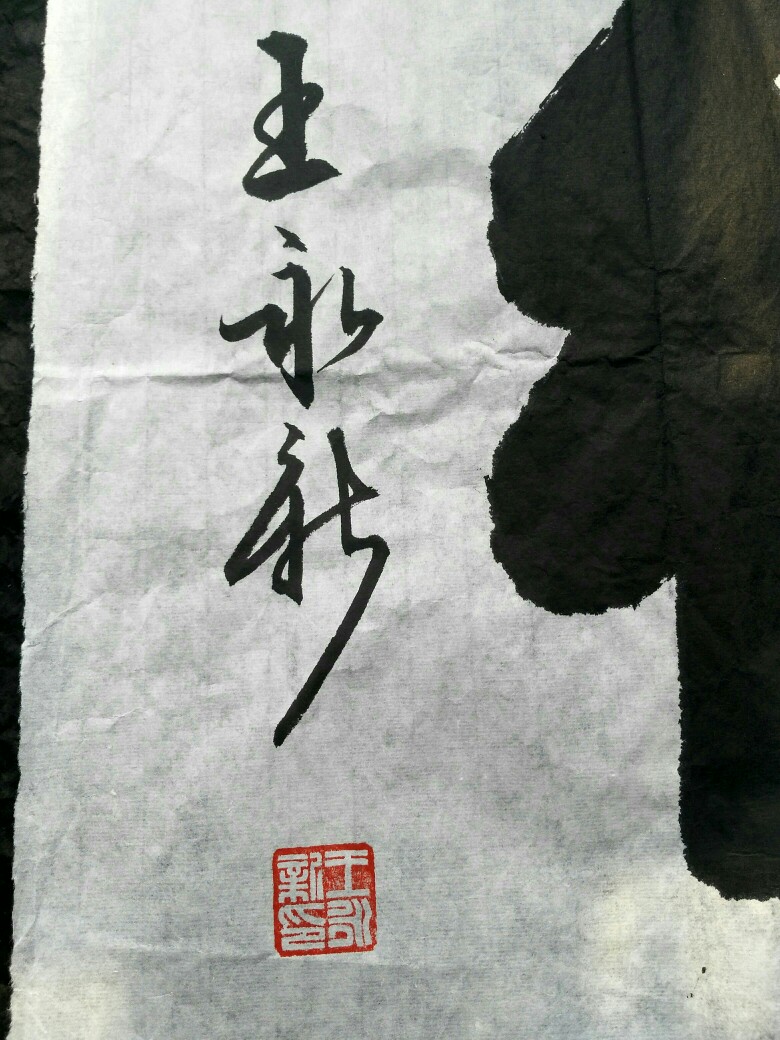 王永新
王永
新印